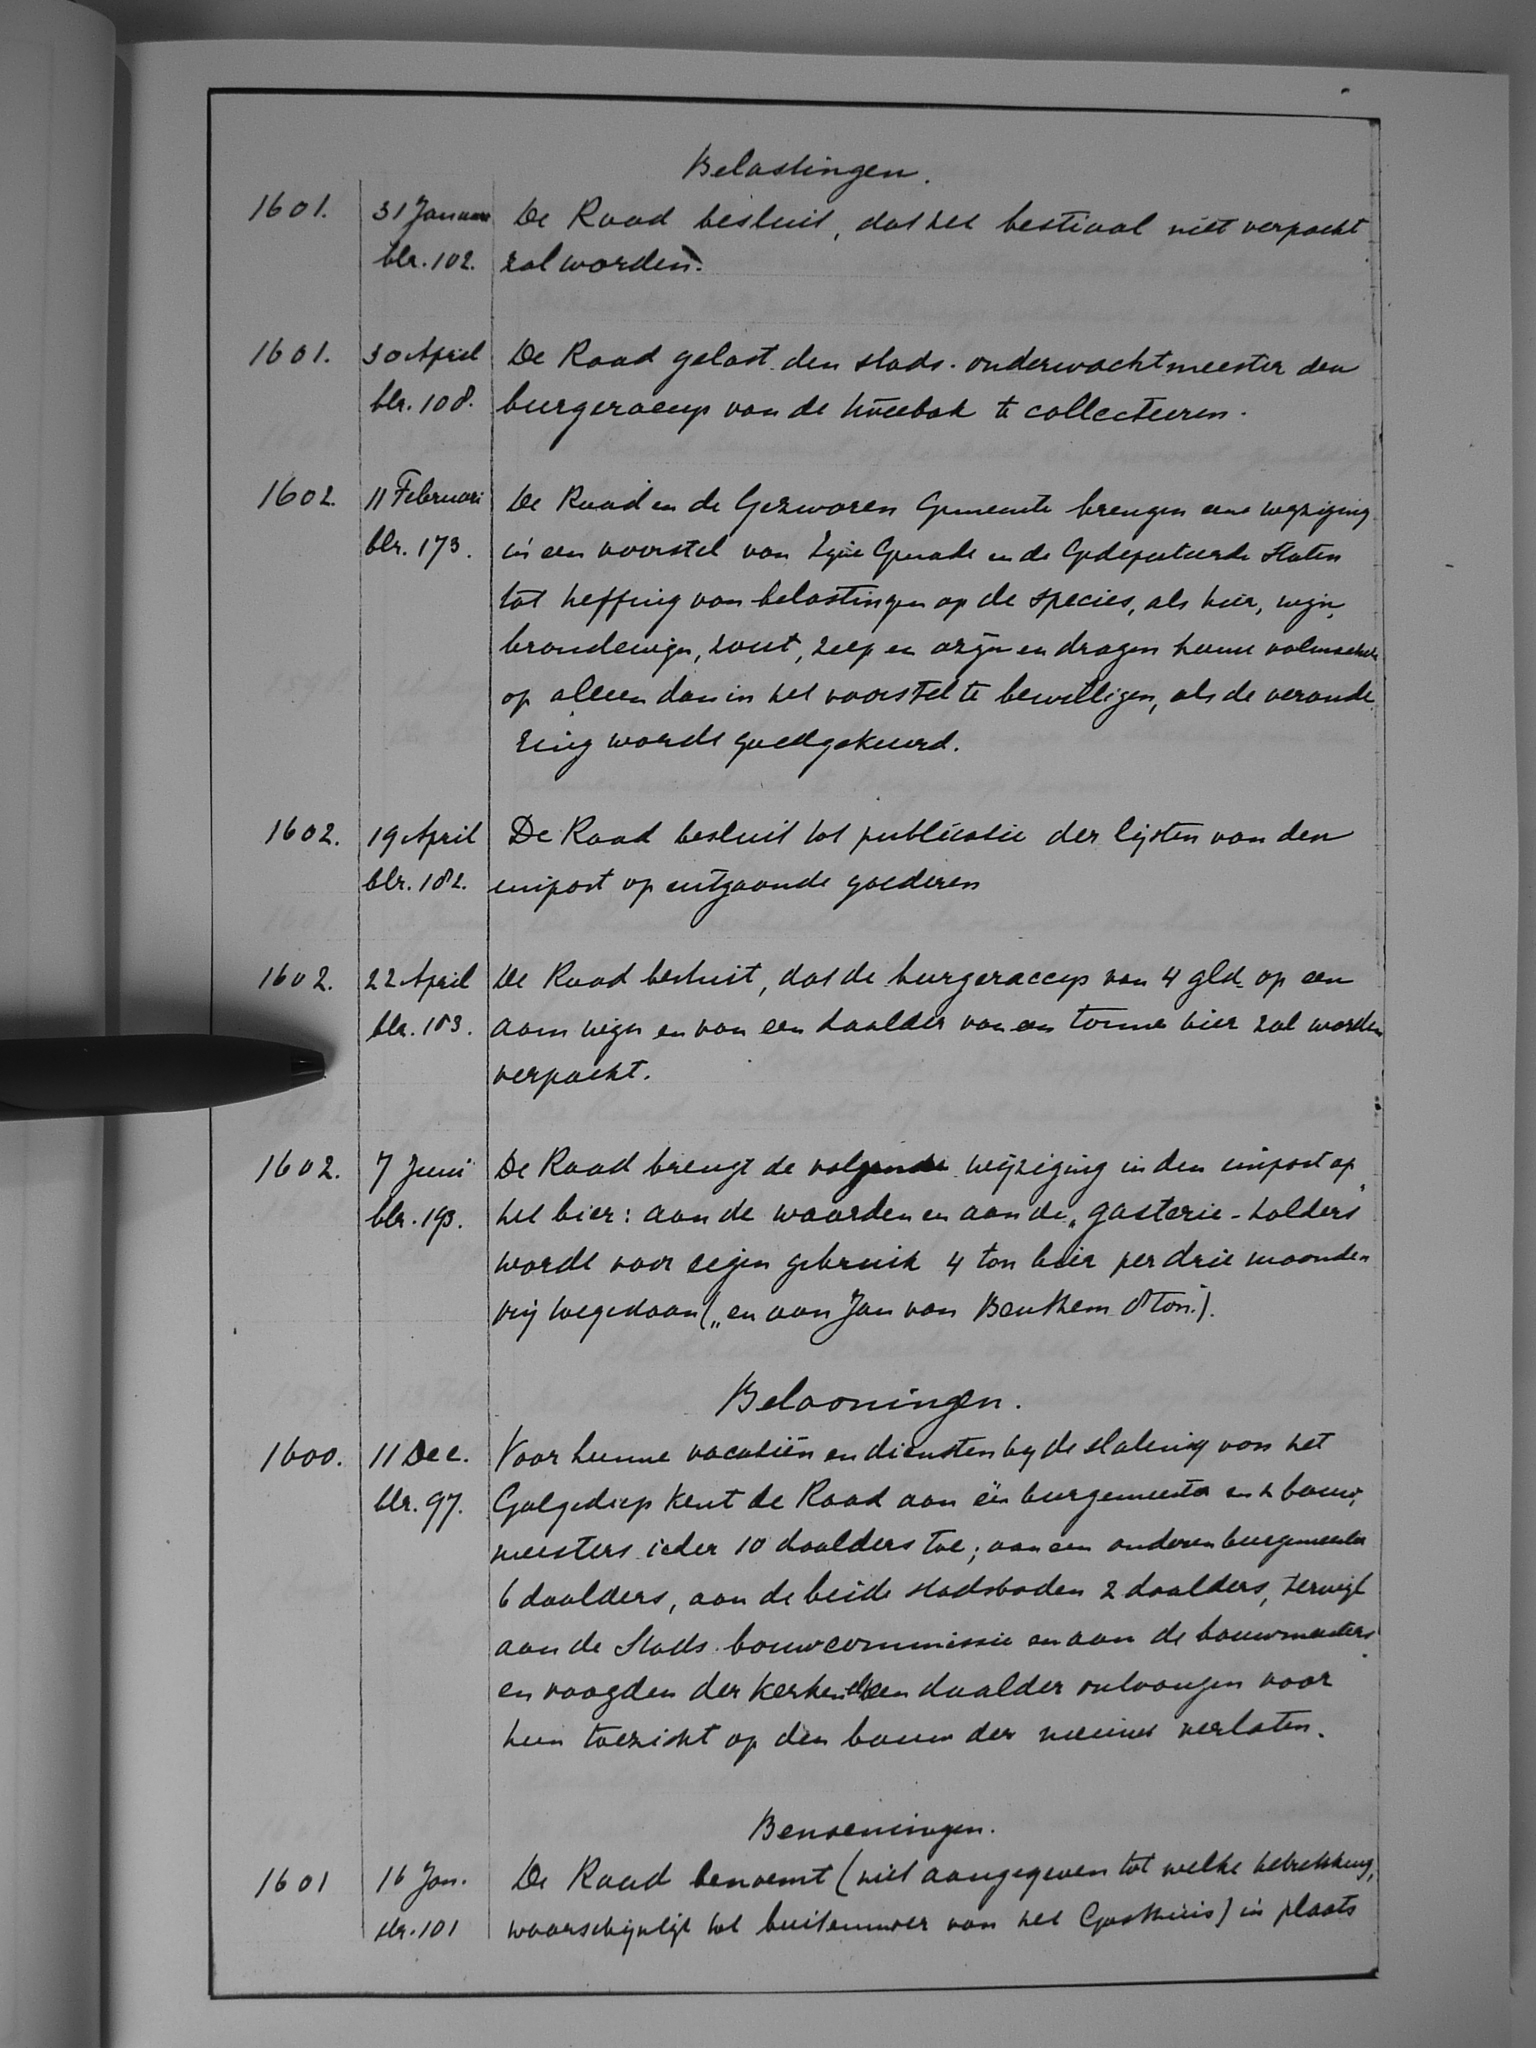 Belastingen.
1601. 31 Januari De Raad besluit, dat het bestiaal niet verpacht
blz. 102. zal worden.
1601. 30 April De Raad gelast den stads-onderwachtmeester den
blz. 108. burgeraccys van de knoebak te collecteeren.
1602. 11 Februari De Raad en de Gezworen Gemeente brengen eene wijziging
blz. 173. in een voorstel van Zijne Genade en de Gedeputeerde Staten
tot heffing van belastingen op de species, als bier, wijn,
brandewijn, zout, zeep en azijn en dragen hunne volmachten
op alleen dan in het voorstel te bewilligen, als de verande-
ring wordt goedgekeurd.
1602. 19 April De Raad besluit tot publicatie der lijsten van den
blz. 182. impost op uitgaande goederen
1602. 22 April De Raad besluit, dat de burgeraccys van 4 gld. op een
blz. 183. aam wijn en van een daalder van een tonne bier zal worden
verpacht.
1602. 7 Juni De Raad brengt de volgende wijziging in den impost op
blz. 193. het bier: aan de waarden en aan de „gasterie-holders"
wordt voor eigen gebruik 4 ton bier per drie maanden
vrij toegedaan („en aan Jan van Benthem 8 ton").
Belooningen.
1600. 11 Dec. Voor hunne vacatiën en diensten bij de slating van het
blz. 97. Galgediep kent de Raad aan één burgemeester en 2 bouw-
meesters ieder 10 daalders toe; aan een anderen burgemeester
6 daalders, aan de beide stadsboden 2 daalders, terwijl
aan de Stads bouwcommissie en aan de bouwmeesters
en voogden der kerken elk een daalder ontvangen voor
hun toezicht op den bouw der nieuwe verlaten.
Benoemingen.
1601 16 Jan. De Raad benoemt (niet aangegeven tot welke betrekking,
blz. 101 waarschijnlijk tot buitenmoer van het Gasthuis) in plaats